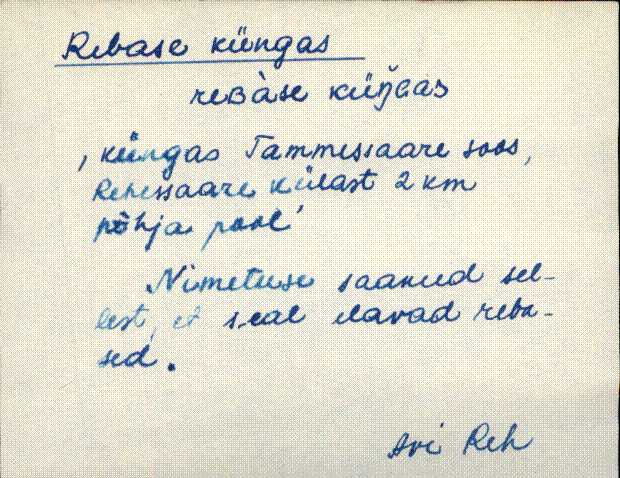 Rebase küngas
reʙàse küŋ̆ɢas
, küngas Tammessaare soos,
Rehessaare külast 2 km
põhja pool’
Nimetuse saanud sel-
lest, et seal elavad reba-
sed.
Avi Reh